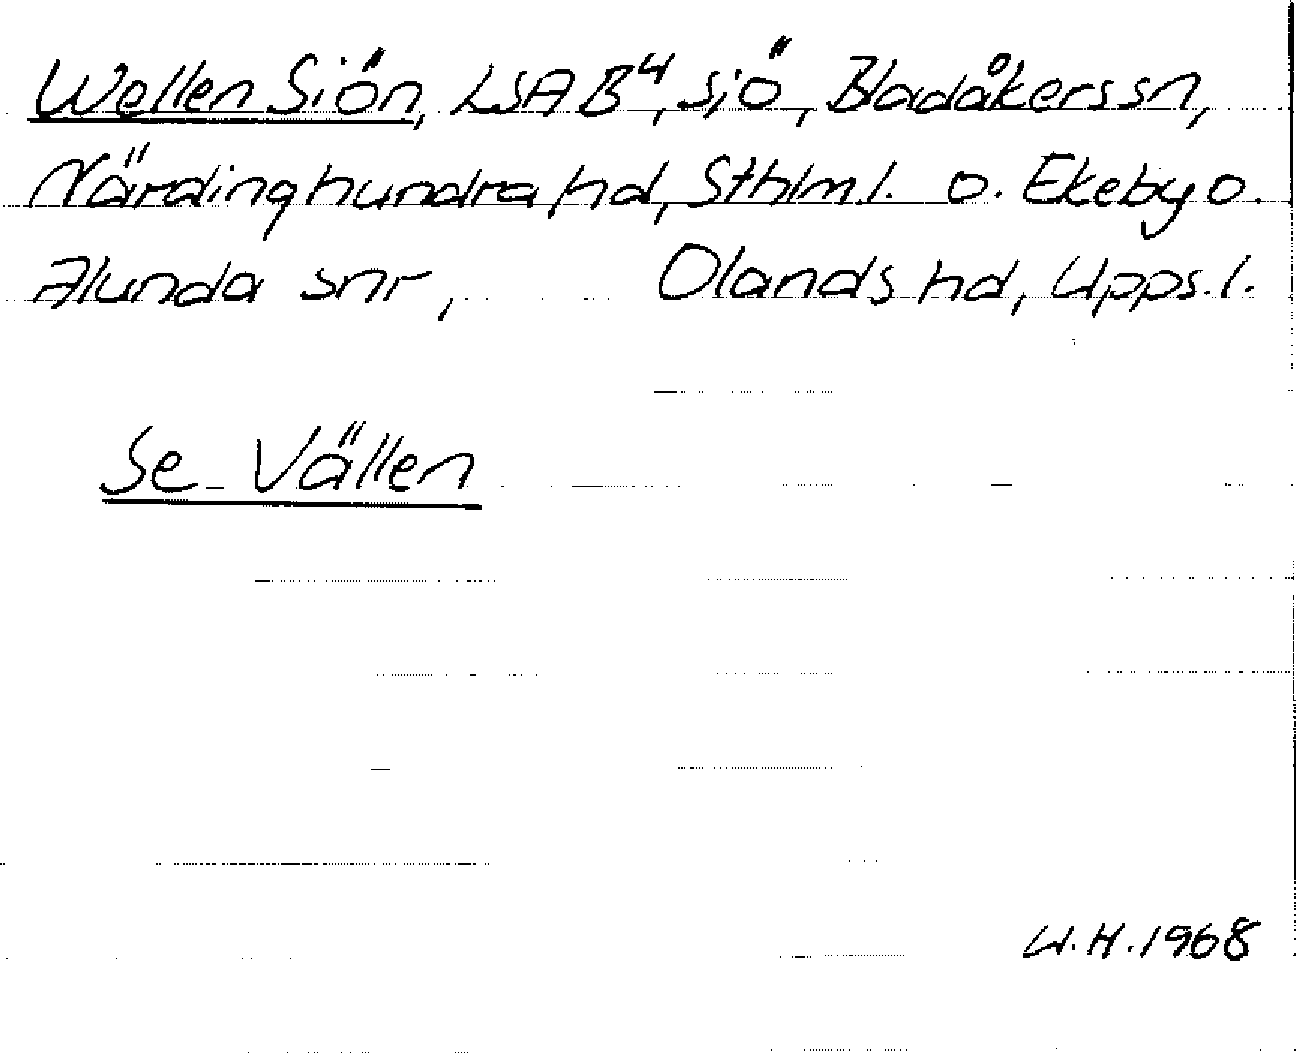 Wellen Siön, LSA B⁴, sjö, Bladåkers sn,
Närdinghundra hd, Sthlm.l. o. Ekeby o.
Alunda snr, Olands hd, Upps.l.
Se Vällen
U.H. 1968